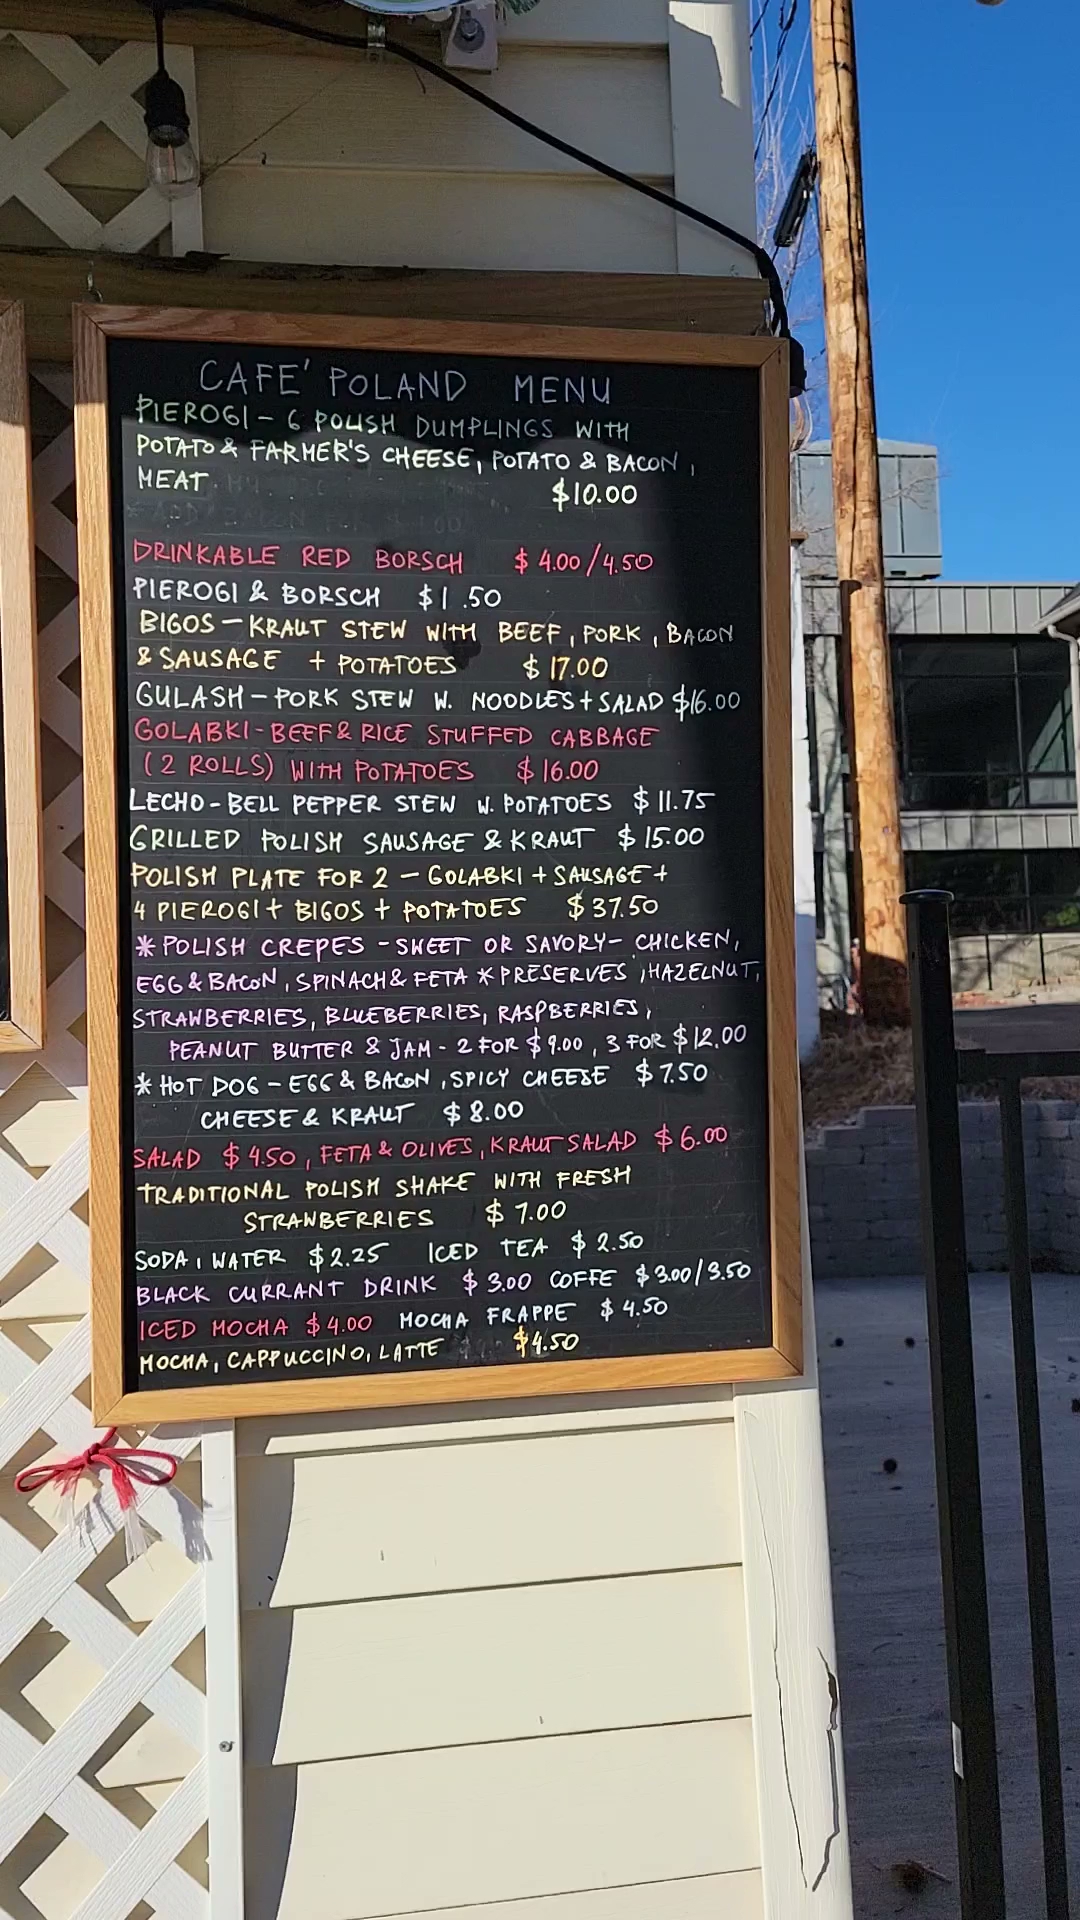 CAFE' POLAND MENU
PIEROGI - 6 POLISH DUMPLINGS WITH
POTATO & FARMER'S CHEESE, POTATO & BACON,
MEAT $10.00
DRINKABLE RED BORSCH $4.00/4.50
PIEROGI & BORSCH $1 .50
BIGOS - KRAUT STEW WITH BEEF, PORK, BACON
& SAUSAGE + POTATOES $17.00
GULASH - PORK STEW W. NOODLES + SALAD $16.00
GOLABKI - BEEF & RICE STUFFED CABBAGE
(2 ROLLS) WITH POTATOES $16.00
LECHO - BELL PEPPER STEW W. POTATOES $11.75
GRILLED POLISH SAUSAGE & KRAUT $15.00
POLISH PLATE FOR 2 - GOLABKI + SAUSAGE +
4 PIEROGI + BIGOS + POTATOES $37.50
* POLISH CREPES - SWEET OR SAVORY - CHICKEN,
EGG & BACON, SPINACH & FETA * PRESERVES, HAZELNUT,
STRAWBERRIES, BLUEBERRIES, RASPBERRIES,
PEANUT BUTTER & JAM - 2 FOR $9.00, 3 FOR $12.00
* HOT DOG - EGG & BACON, SPICY CHEESE $7.50
CHEESE & KRAUT $8.00
SALAD $4.50, FETA & OLIVES, KRAUT SALAD $6.00
TRADITIONAL POLISH SHAKE WITH FRESH
STRAWBERRIES $7.00
SODA, WATER $2.25 ICED TEA $2.50
BLACK CURRANT DRINK $3.00 COFFE $3.00/3.50
ICED MOCHA $4.00 MOCHA FRAPPE $4.50
MOCHA, CAPPUCCINO, LATTE $4.50